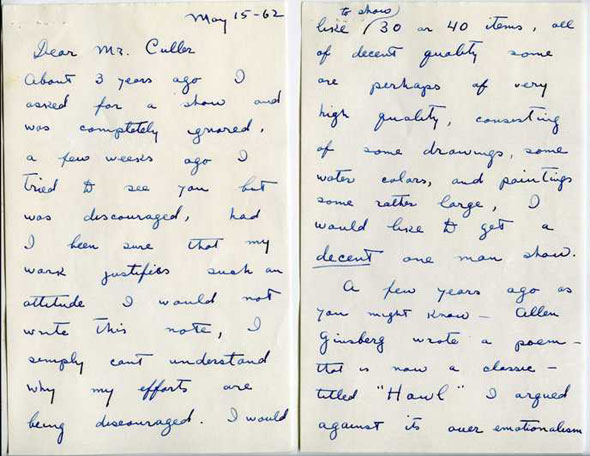 May 15-62
Dear Mr. Culler
About 3 years ago I
asked for a show and
was completely ignored,
a few weeks ago I
tried to see you but
was discouraged, had
I been sure that my
work justifies such an
attitude I would not
write this note, I
simply cant understand
why my efforts are
being discouraged. I would
to show
like 30 or 40 items, all
of decent quality some
are perhaps of very
high quality, consesting
of some drawings, some
water colors, and paintings
some rather large, I
would like to get a
decent one man show.
A few years ago as
you might know - Allen
Ginsberg wrote a poem -
that is now a classic -
titled "Howl" I argued
against its over emotionalism